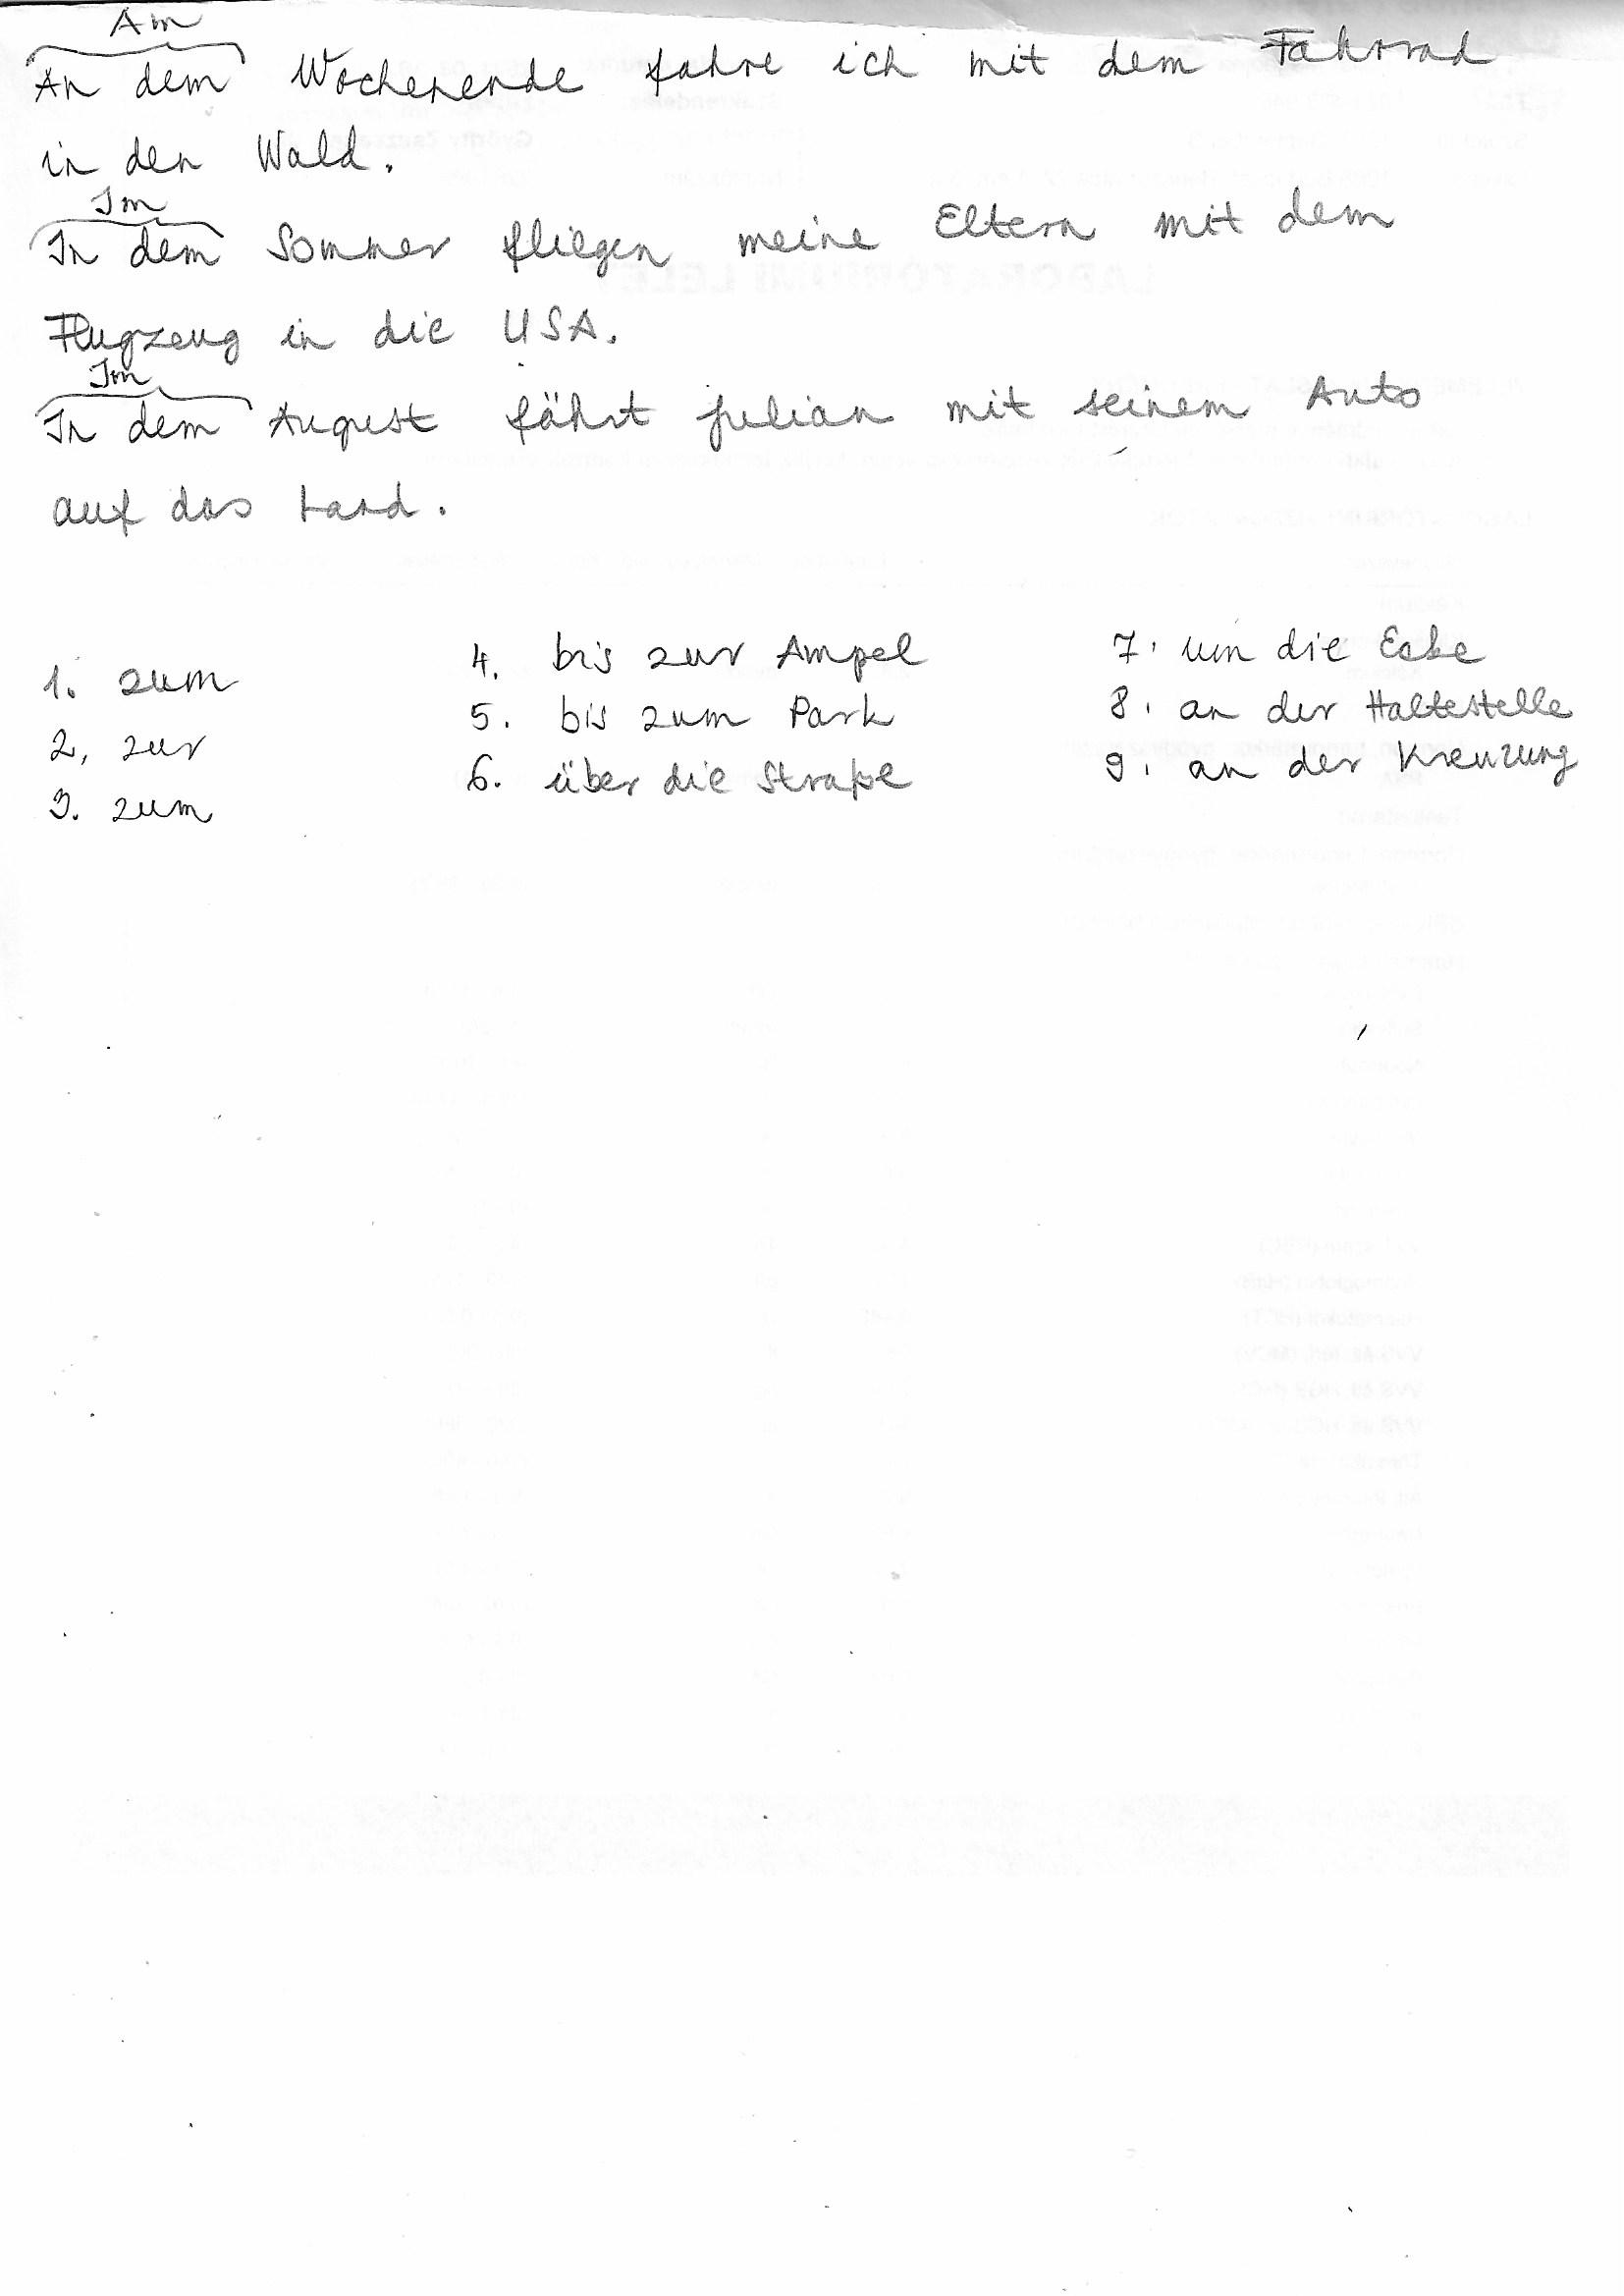 Am
An dem Wochenende fahre ich mit dem Fahrrad
in den Wald.
Im
In dem Sommer fliegen meine Eltern mit dem
Flugzeug in die USA.
Im
In dem August fährt Julian mit seinem Auto
auf das Land.
1. zum
2. zur
3. zum
4. bis zur Ampel
5. bis zum Park
6. über die Straße
7. um die Ecke
8. an der Haltestelle
9. an der Kreuzung